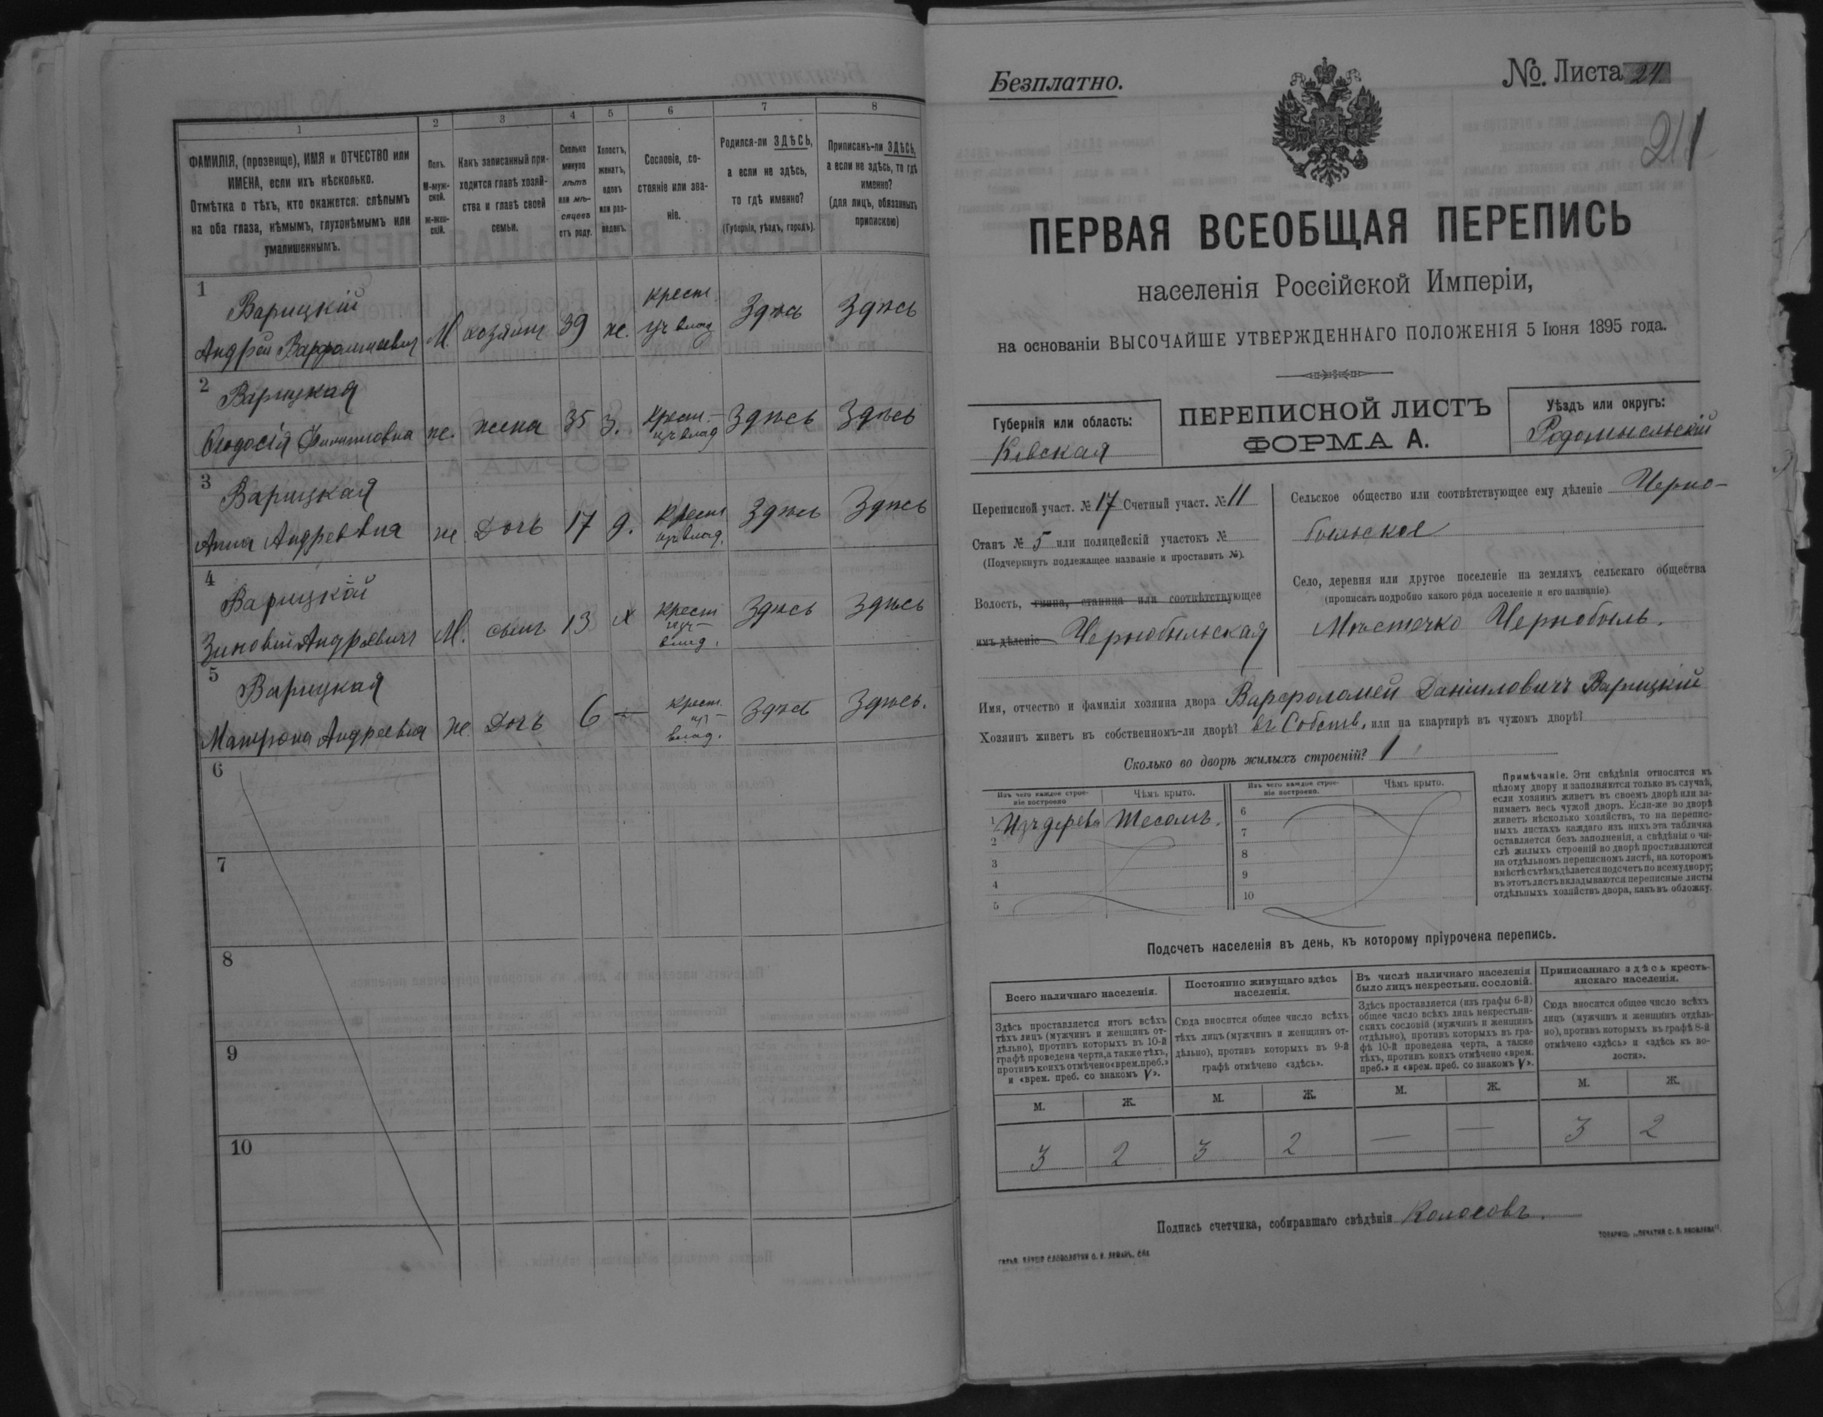 1
2
3
4
5
6
7
8
ФАМИЛІЯ, (прозвище), ИМЯ и ОТЧЕСТВО или
ИМЕНА, если ихъ нѣсколько.
Отмѣтка о тѣхъ, кто окажется: слѣпымъ
на оба глаза, нѣмымъ, глухонѣмымъ или
умалишеннымъ.
Полъ.
М-муж-
ской.
Ж-жен-
скій.
Какъ записанный при-
ходится главѣ хозяй-
ства и главѣ своей
семьи.
Сколько
минуло
лѣтъ
или мѣ-
сяцевъ
отъ роду.
Холостъ,
женатъ,
вдовъ
или раз-
веденъ.
Сословіе, со-
стояніе или зва-
ніе.
Родился-ли ЗДѢСЬ,
а если не здѣсь,
то гдѣ именно?
(Губернія, уѣздъ, городъ).
Приписанъ-ли ЗДѢСЬ,
а если не здѣсь, то гдѣ
именно?
(для лицъ, обязанныхъ
припискою)
1
Варицкій
Андрей Варфоломеевич М хозяинъ 39 ж. крест. из влад Здѣсь Здѣсь
2
Варицкая
Ѳеодосія Филиповна ж. жена 35 з. крест. из влад Здѣсь Здѣсь
3
Варицкая
Анна Андреевна ж Дочь 17 д. Крест из влад. Здѣсь Здѣсь
4
Варицкій
Зиновій Андреевич М. сынъ 13 х крест из влад. Здѣсь Здѣсь
5
Варицкая
Матрона Андреевна ж Дочь 6 — крест. из влад. Здѣсь Здѣсь.
6
7
8
9
10
Безплатно.
№. Листа 24
211
ПЕРВАЯ ВСЕОБЩАЯ ПЕРЕПИСЬ
населенія Россійской Имперіи,
на основаніи ВЫСОЧАЙШЕ УТВЕРЖДЕННАГО ПОЛОЖЕНІЯ 5 Іюня 1895 года.
Губернія или область:
Кіевская
ПЕРЕПИСНОЙ ЛИСТЪ
ФОРМА А.
Уѣздъ или округъ:
Радомысльскій
Переписной участ. № 17 Счетный участ. № 11
Станъ № 5 или полицейскій участокъ №
(Подчеркнуть подлежащее названіе и проставить №).
Волость, гмина, станица или соотвѣтствующее
имъ дѣленіе Чернобыльская
Сельское общество или соотвѣтствующее ему дѣленіе Черно-
быльское
Село, деревня или другое поселеніе на земляхъ сельскаго общества
(прописать подробно какого рода поселеніе и его названіе).
Мѣстечко Чернобыль.
Имя, отчество и фамилія хозяина двора Варфоломей Даниловичъ Варицкій
Хозяинъ живетъ въ собственномъ-ли дворѣ? въ Собств. или на квартирѣ въ чужомъ дворѣ?
Сколько во дворѣ жилыхъ строеній? 1
Изъ чего каждое строе-
ніе построено
Чѣмъ крыто.
Изъ чего каждое строе-
ніе построено.
Чѣмъ крыто.
1 Изъ дерева Тесомъ.
2
3
4
5
6
7
8
9
10
Примѣчаніе. Эти свѣдѣнія относятся къ
цѣлому двору и заполняются только въ случаѣ,
если хозяинъ живетъ въ своемъ дворѣ или за-
нимаетъ весь чужой дворъ. Если-же во дворѣ
живетъ нѣсколько хозяйствъ, то на перепис-
ныхъ листахъ каждаго изъ нихъ эта табличка
оставляется безъ заполненія, а свѣдѣнія о чи-
слѣ жилыхъ строеній во дворѣ проставляются
на отдѣльномъ переписномъ листѣ, на которомъ
вмѣстѣ съ тѣмъ дѣлается подсчетъ по всему двору;
въ этотъ листъ вкладываются переписные листы
отдѣльныхъ хозяйствъ двора, какъ въ обложку.
Подсчетъ населенія въ день, къ которому пріурочена перепись.
Всего наличнаго населенія.
Здѣсь проставляется итогъ всѣхъ
тѣхъ лицъ (мужчинъ и женщинъ от-
дѣльно), противъ которыхъ въ 10-й
графѣ проведена черта, а также тѣхъ,
противъ коихъ отмѣчено «врем. преб.»
и «врем. преб. со знакомъ V».
Постоянно живущаго здѣсь
населенія.
Сюда вносится общее число всѣхъ
тѣхъ лицъ (мужчинъ и женщинъ от-
дѣльно), противъ которыхъ въ 9-й
графѣ отмѣчено «здѣсь».
Въ числѣ наличнаго населенія
было лицъ некрестьян. сословій.
Здѣсь проставляется (изъ графы 6-й)
общее число всѣхъ лицъ некрестьян-
скихъ сословій (мужчинъ и женщинъ
отдѣльно), противъ которыхъ въ гра-
фѣ 10-й проведена черта, а также
тѣхъ, противъ коихъ отмѣчено «врем.
преб.» и «врем. преб. со знакомъ V».
Приписаннаго здѣсь кресть-
янскаго населенія.
Сюда вносится общее число всѣхъ
лицъ (мужчинъ и женщинъ отдѣль-
но), противъ которыхъ въ графѣ 8-й
отмѣчено «здѣсь» и «здѣсь къ во-
лости».
М. Ж. М. Ж. М. Ж. М. Ж.
3 2 3 2 — — 3 2
Подпись счетчика, собиравшаго свѣдѣнія Колосовъ.